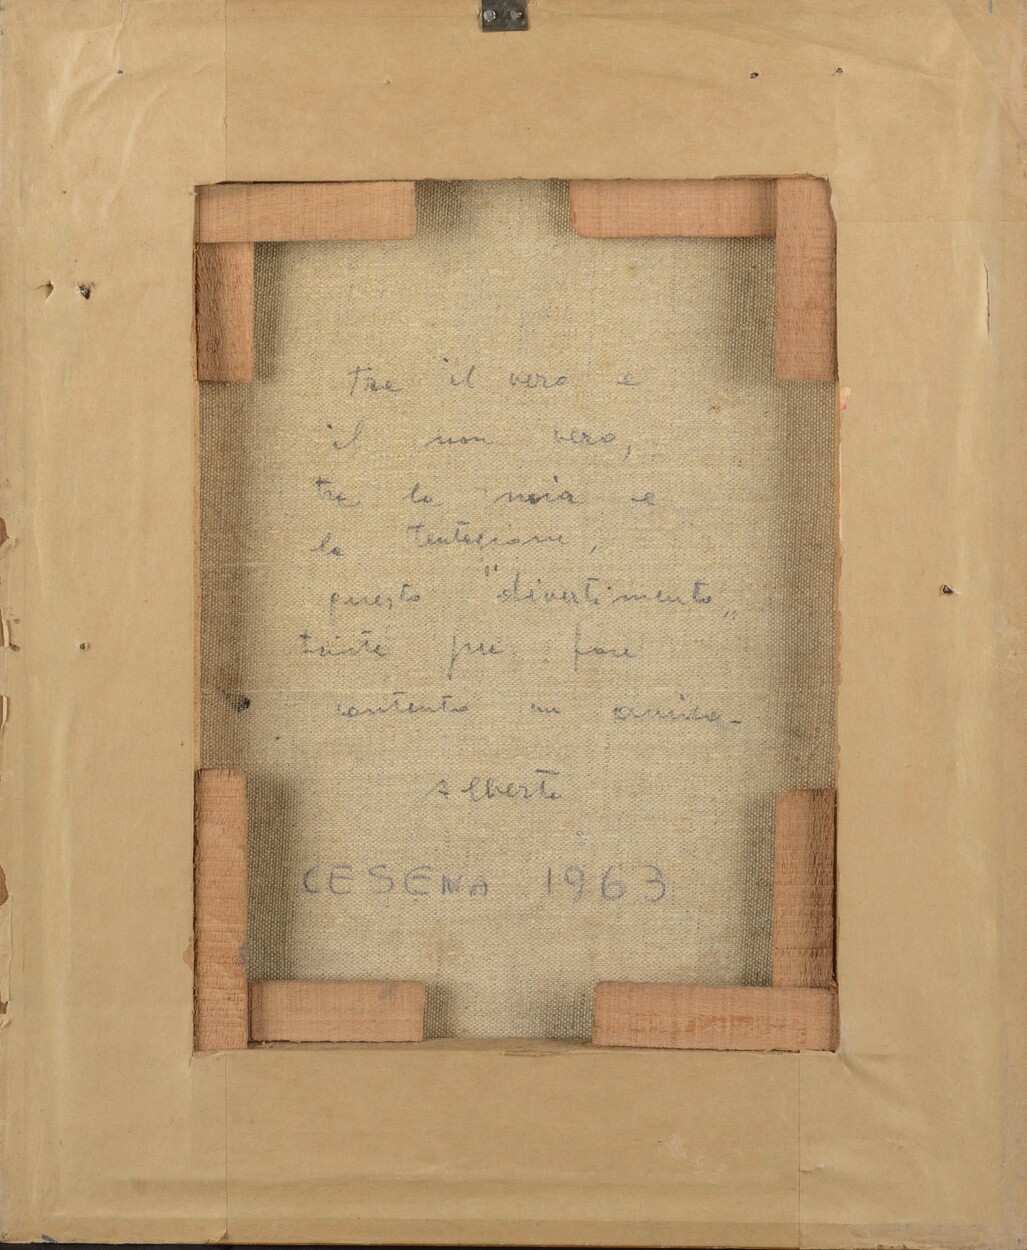 tra il vero e
il non vero,
tra la noia e
la tentazione,
questo "divertimento"
triste può fare
contento un amico-
Alberto
CESENA 1963